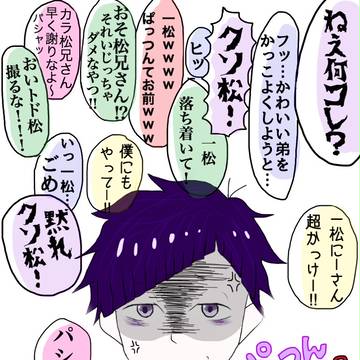 ねぇ何コレ?
フッ…かわいい弟を
かっこよくしようと…
クソ松!
ヒッ
一松
落ち着いて!
一松wwww
ぱっつんてお前www
おそ松兄さん!?
それいじっちゃ
ダメなやつ!!
カラ松兄さん
早く謝りなよ〜
パシャッ
おいトド松
撮るな!!!
僕にも
やって〜!!
いっ一松…
ごめ
黙れ
クソ松!
一松にーさん
超かっけー!!
ぱっつん